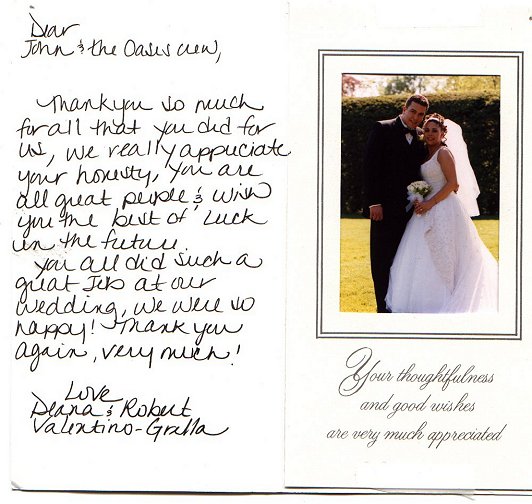 Dear
John & the Oasis crew,
Thankyou so much
for all that you did for
us, we really appriciate
your honesty, you are
all great people & wish
you the best of Luck
in the future.
You all did such a
great Job at our
wedding, we were so
happy! Thank you
again, very much!
Love
Deana & Robert
Valentino-
Your thoughtfulness
and good wishes
are very much appreciated